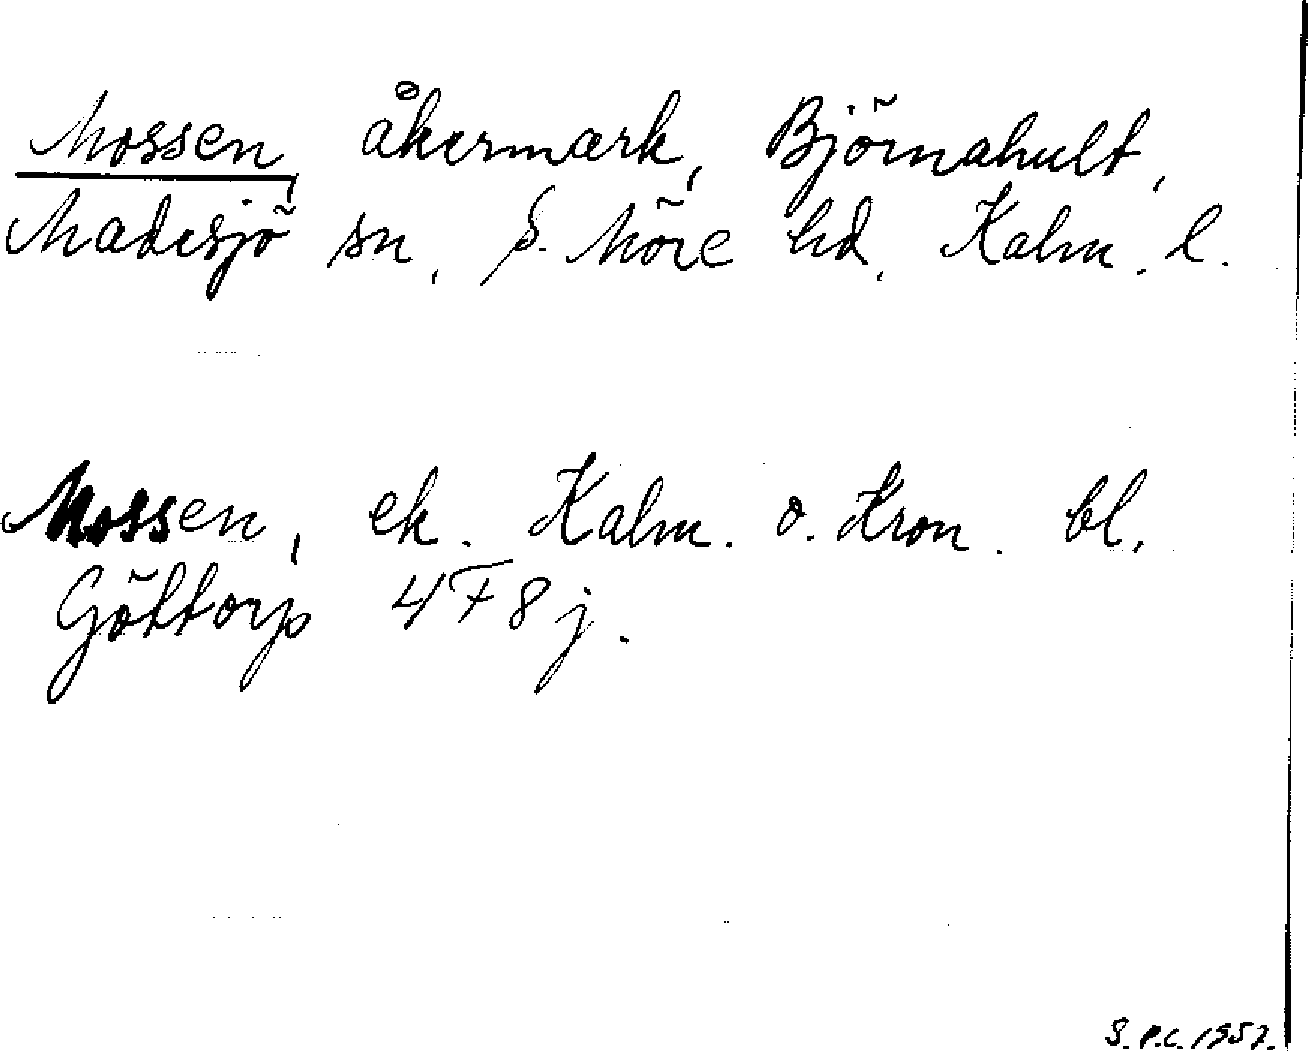 Mossen, åkermark, Björnahult,
Madesjö sn, S. Möre hd, Kalm. l.
Mossen, ek. Kalm. o. Kron. bl.
Göttorp 4F8j.
S. P.C. 1957.